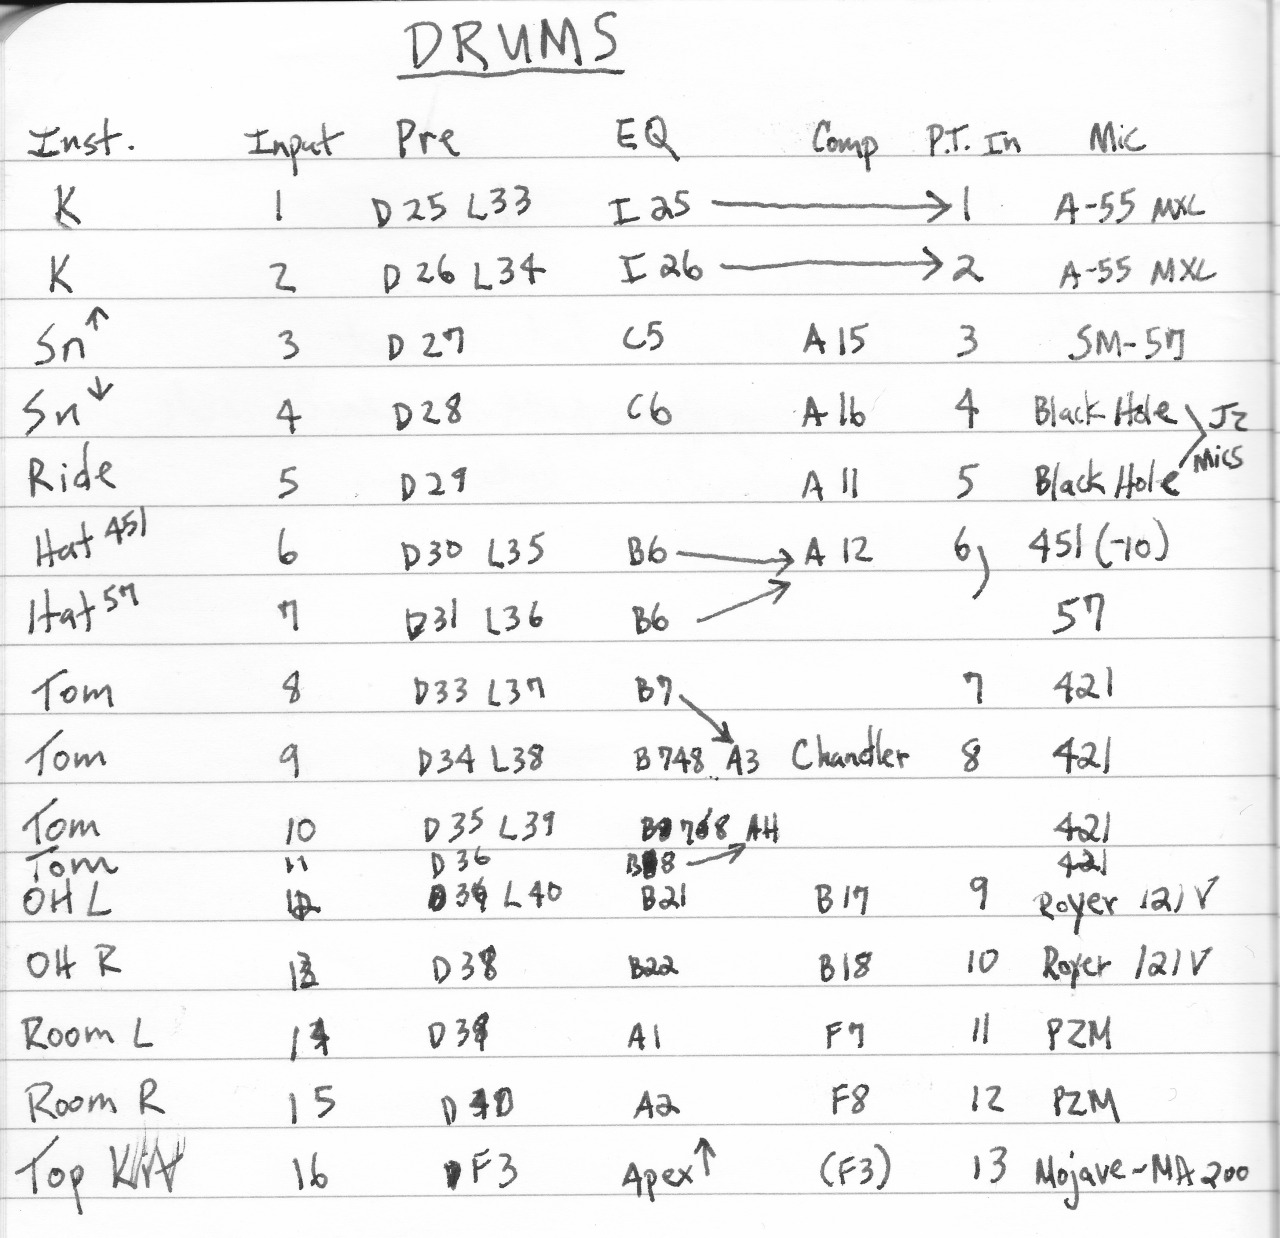 DRUMS
Inst. Input Pre EQ Comp P.T. In Mic
K 1 D25 L33 I25 → 1 A-55 MXL
K 2 D26 L34 I26 → 2 A-55 MXL
Sn↑ 3 D27 C5 A15 3 SM-57
Sn↓ 4 D28 C6 A16 4 Black Hole JZ
Ride 5 D29 A11 5 Black Hole Mics
Hat 451 6 D30 L35 B6 → A12 6 451 (-10)
Hat 57 7 D31 L36 B6 → 57
Tom 8 D33 L37 B7 7 421
Tom 9 D34 L38 B748 A3 Chandler 8 421
Tom 10 D35 L39 421
Tom 11 D36 → 421
OH L 12 L40 B21 B17 9 Royer 121V
OH R 13 D38 B22 B18 10 Royer 121V
Room L 14 D39 A1 F7 11 PZM
Room R 15 D40 A2 F8 12 PZM
Top Kit 16 F3 Apex↑ (F3) 13 Mojave-MA200